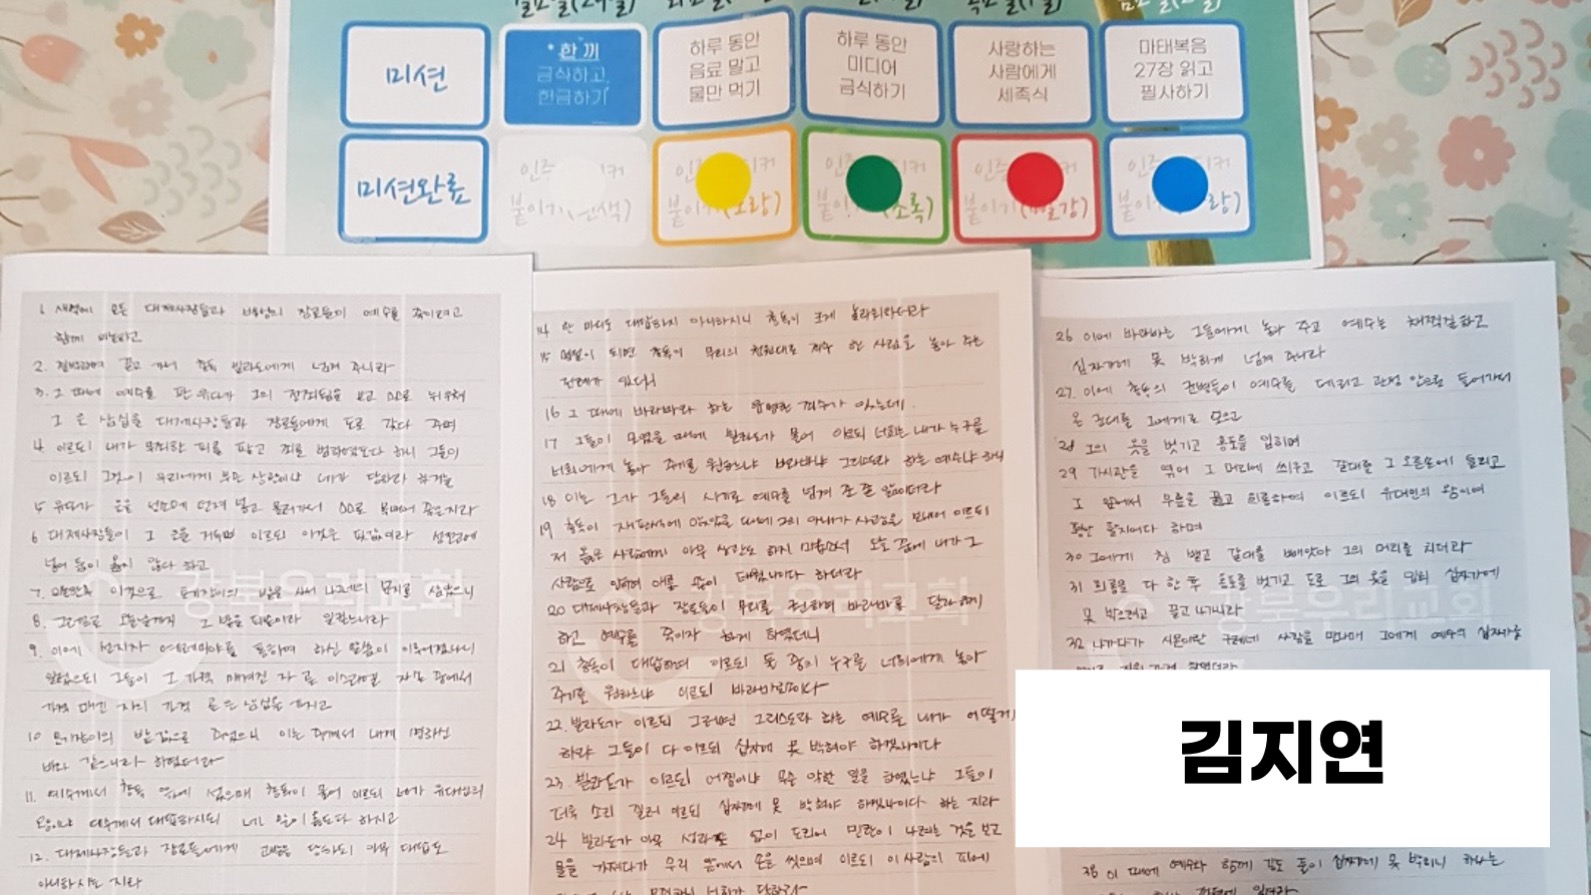 미션
한 끼
금식하고
헌금하기
하루 동안
음료 말고
물만 먹기
하루 동안
미디어
금식하기
사랑하는
사람에게
세족식
마태복음
27장 읽고
필사하기
미션완료
1. 새벽에 모든 대제사장들과 백성의 장로들이 예수를 죽이려고
함께 의논하고
2. 결박하여 끌고 가서 총독 빌라도에게 넘겨 주니라
3. 그 때에 예수를 판 유다가 그의 정죄됨을 보고 스스로 뉘우쳐
그 은 삼십을 대제사장들과 장로들에게 도로 갖다 주며
4 이르되 내가 무죄한 피를 팔고 죄를 범하였도다 하니 그들이
이르되 그것이 우리에게 무슨 상관이냐 네가 당하라 하거늘
5 유다가 은을 성소에 던져 넣고 물러가서 스스로 목매어 죽은지라
6 대제사장들이 그 은을 거두며 이르되 이것은 핏값이라 성전고에
넣어 둠이 옳지 않다 하고
7. 의논한 후 이것으로 토기장이의 밭을 사서 나그네의 묘지를 삼았으니
8. 그러므로 오늘날까지 그 밭을 피밭이라 일컫느니라
9. 이에 선지자 예레미야를 통하여 하신 말씀이 이루어졌나니
일렀으되 그들이 그 가격 매겨진 자 곧 이스라엘 자손 중에서
가격 매긴 자의 가격 곧 은 삼십을 가지고
10 토기장이의 밭 값으로 주었으니 이는 주께서 내게 명하신
바와 같으니라 하였더라
11. 예수께서 총독 앞에 섰으매 총독이 물어 이르되 네가 유대인의
왕이냐 예수께서 대답하시되 네 말이 옳도다 하시고
12. 대제사장들과 장로들에게 고발을 당하되 아무 대답도
아니하시는 지라
14 한 마디도 대답하지 아니하시니 총독이 크게 놀라워하더라
15 명절이 되면 총독이 무리의 청원대로 죄수 한 사람을 놓아 주는
전례가 있더니
16 그 때에 바라바라 하는 유명한 죄수가 있는데
17 그들이 모였을 때에 빌라도가 물어 이르되 너희는 내가 누구를
너희에게 놓아 주기를 원하느냐 바라바냐 그리스도라 하는 예수냐 하니
18 이는 그가 그들의 시기로 예수를 넘겨 준 줄 앎이더라
19 총독이 재판석에 앉았을 때에 그의 아내가 사람을 보내어 이르되
저 옳은 사람에게 아무 상관도 하지 마옵소서 오늘 꿈에 내가 그
사람으로 인하여 애를 많이 태웠나이다 하더라
20 대제사장들과 장로들이 무리를 권하여 바라바를 달라 하게
하고 예수를 죽이자 하게 하였더니
21 총독이 대답하여 이르되 둘 중의 누구를 너희에게 놓아
주기를 원하느냐 이르되 바라바로소이다
22. 빌라도가 이르되 그러면 그리스도라 하는 예수를 내가 어떻게
하랴 그들이 다 이르되 십자가에 못 박혀야 하겠나이다
23. 빌라도가 이르되 어찜이냐 무슨 악한 일을 하였느냐 그들이
더욱 소리 질러 이르되 십자가에 못 박혀야 하겠나이다 하는 지라
24 빌라도가 아무 성과도 없이 도리어 민란이 나려는 것을 보고
물을 가져다가 무리 앞에서 손을 씻으며 이르되 이 사람의 피에
26 이에 바라바는 그들에게 놓아 주고 예수는 채찍질하고
십자가에 못 박히게 넘겨 주니라
27. 이에 총독의 군병들이 예수를 데리고 관정 안으로 들어가서
온 군대를 그에게로 모으고
28 그의 옷을 벗기고 홍포를 입히며
29 가시관을 엮어 그 머리에 씌우고 갈대를 그 오른손에 들리고
그 앞에서 무릎을 꿇고 희롱하여 이르되 유대인의 왕이여
평안 할지어다 하며
30 그에게 침 뱉고 갈대를 빼앗아 그의 머리를 치더라
31 희롱을 다 한 후 홍포를 벗기고 도로 그의 옷을 입혀 십자가에
못 박으려고 끌고 나가니라
32 나가다가 시몬이란 구레네 사람을 만나매 그에게 예수의 십자가를
38 이 때에 예수와 함께 강도 둘이 십자가에 못 박히니 하나는
강북우리교회
강북우리교회
강북우리교회
김지연